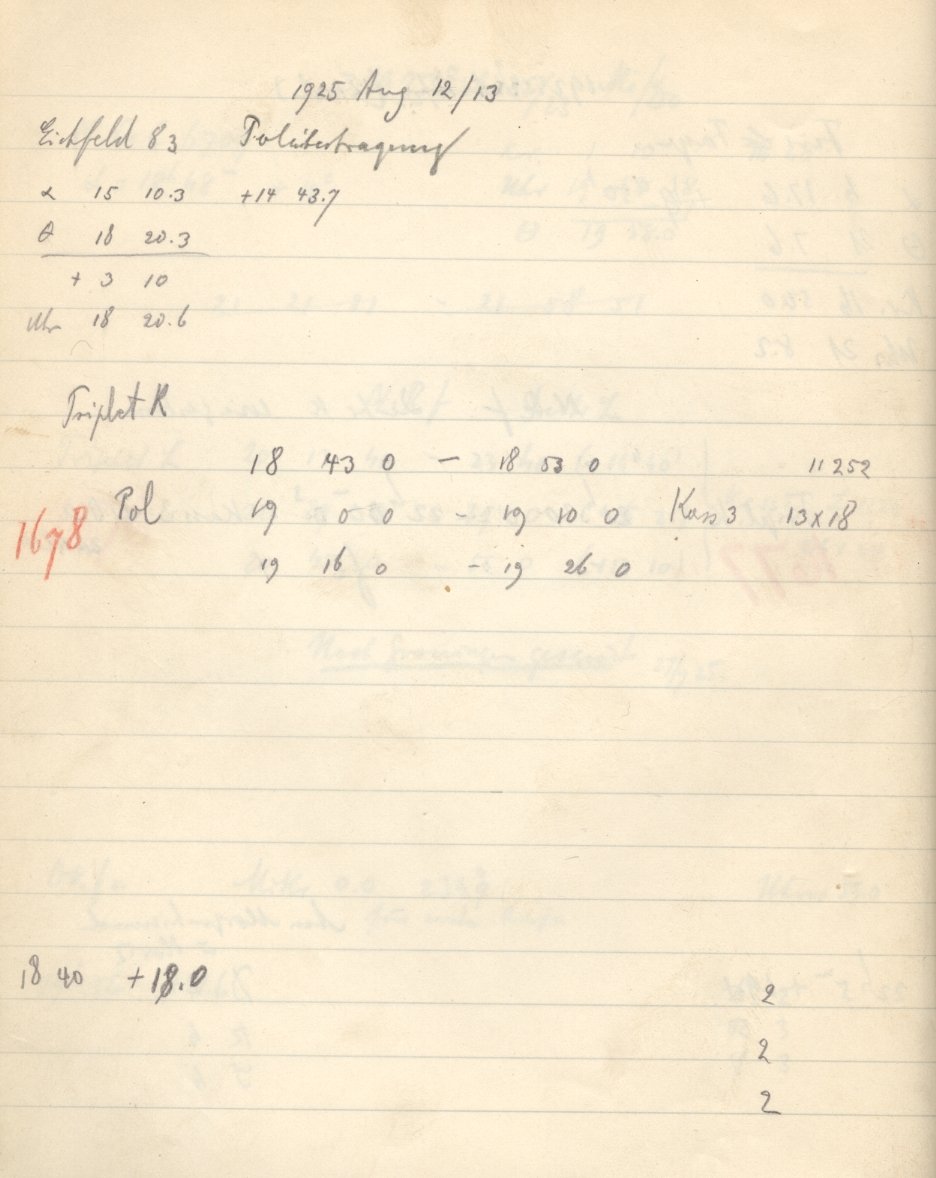 1925 Aug 12/13
Eichfeld 83 Polübertragung
α 15 10.3 +14 43.7
θ 18 20.3
+ 3 10
Uhr 18 20.6
Triplet R
18 43 0 — 18 53 0 11252
1678 Pol 19 0 0 - 19 10 0 Kass 3 13x18
19 16 0 - 19 26 0
18 40 +18.0
2
2
2